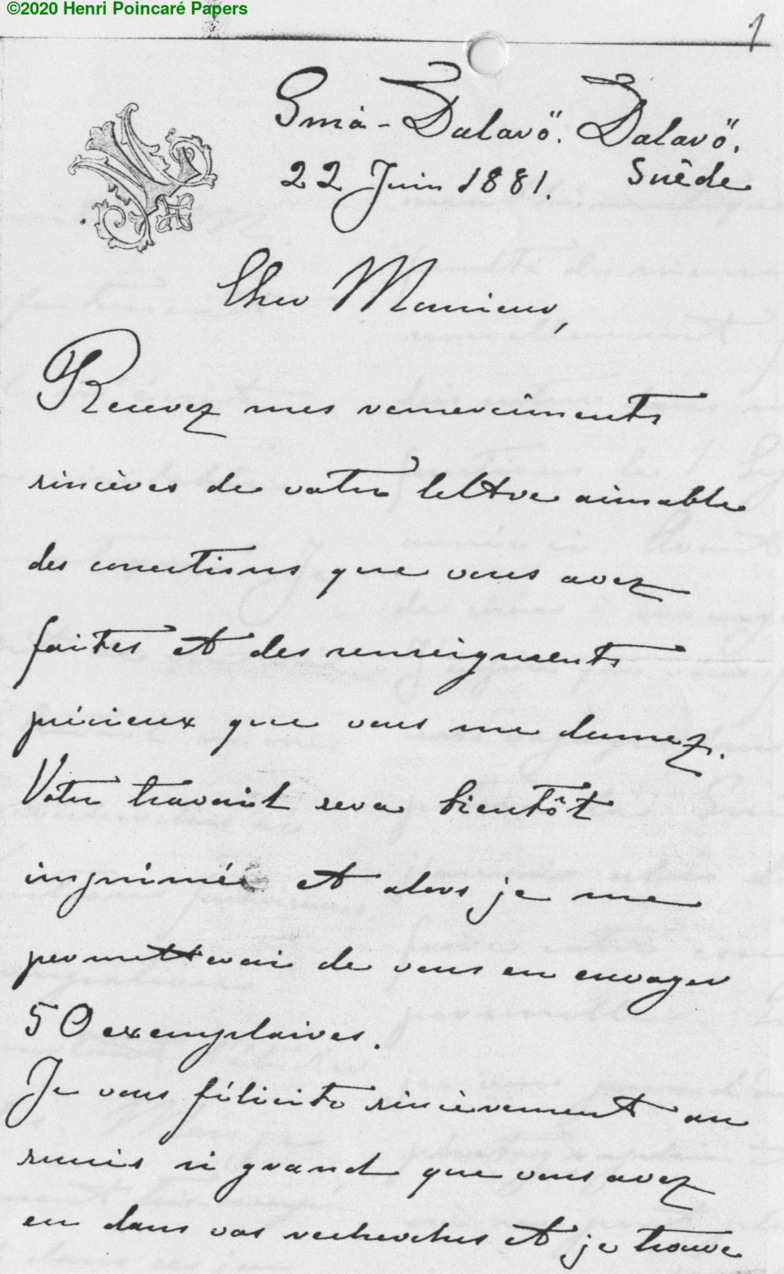 ©2020 Henri Poincaré Papers
1
Små-Dalarö. Dalarö.
22 Juin 1881. Suède
Cher Monsieur,
Recevez mes remerciments
sincères de votre lettre aimable
des corrections que vous avez
faites et des renseigments
précieux que vous me donnez.
Votre travail sera bientôt
imprimée et alors je me
permettterai de vous en envoyer
50 exemplaires.
Je vous félicite sincèrement au
succès si grand que vous avez
eu dans vos recherches et je trouve